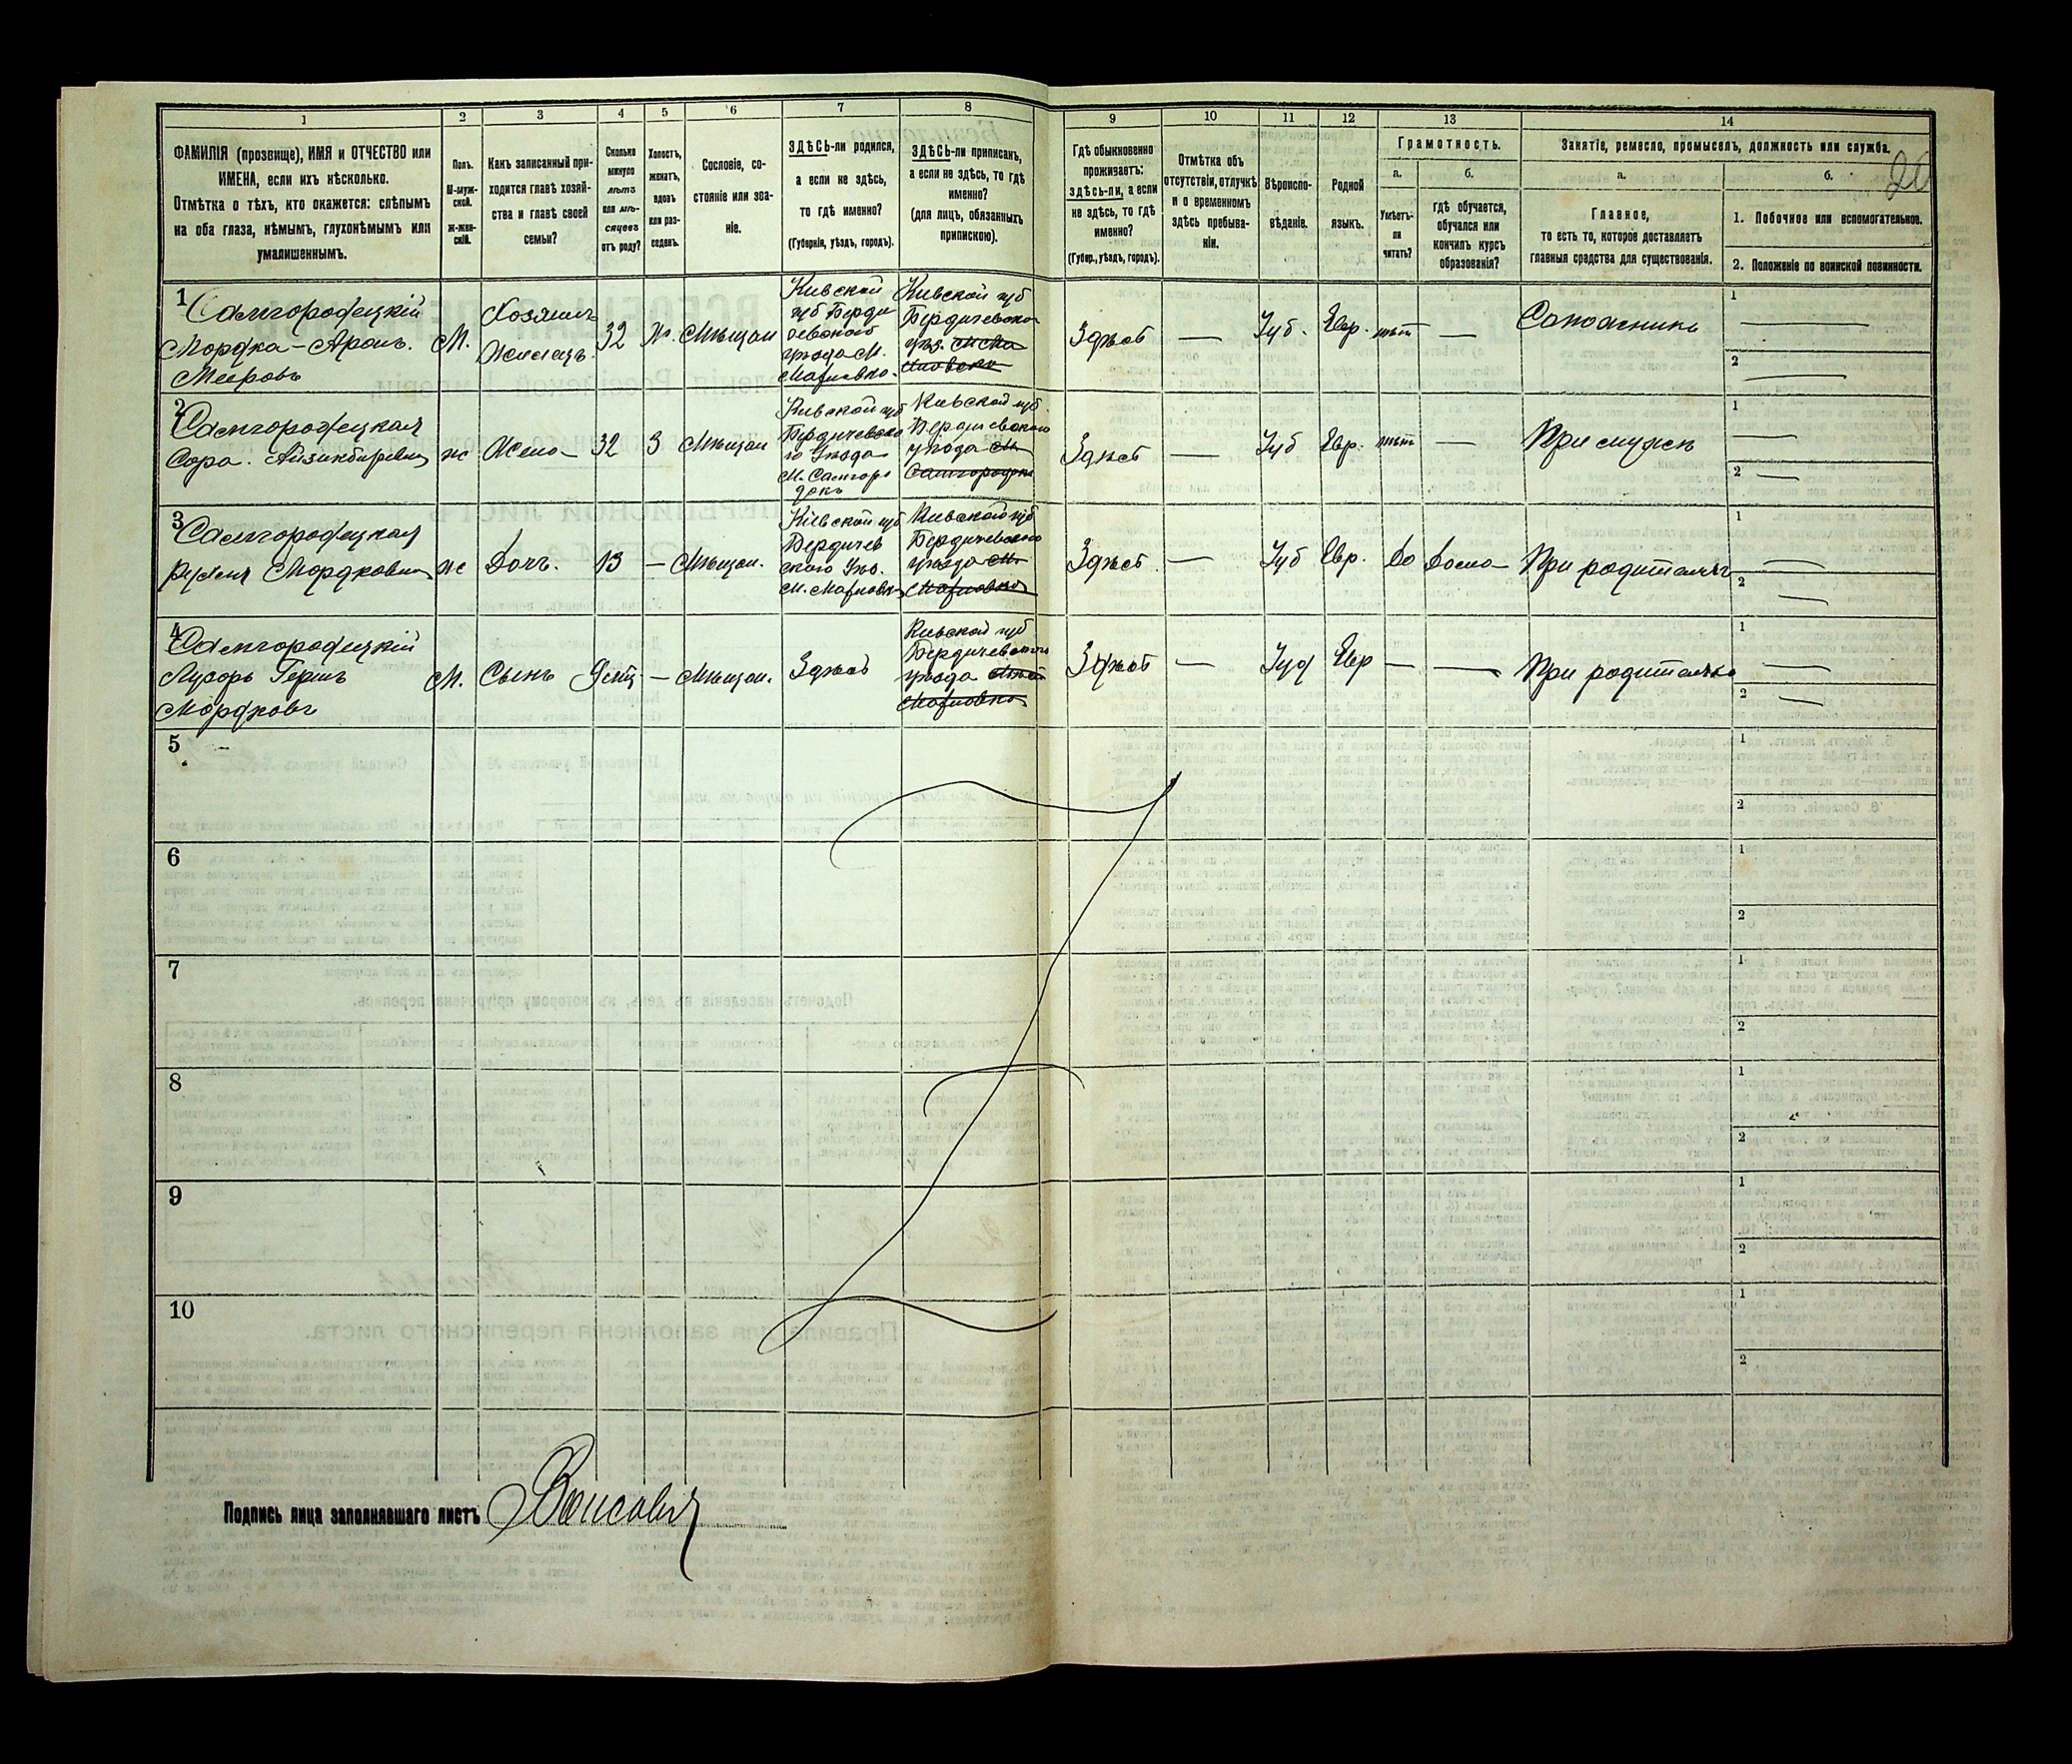 1
2
3
4
5
6
7
8
9
10
11
12
13
14
ФАМИЛІЯ (прозвище), ИМЯ и ОТЧЕСТВО или
ИМЕНА, если ихъ нѣсколько.
Отмѣтка о тѣхъ, кто окажется: слѣпымъ
на оба глаза, нѣмымъ, глухонѣмымъ или
умалишеннымъ.
Полъ.
М-муж-
ской.
Ж-жен-
скій.
Какъ записанный при-
ходится главѣ хозяй-
ства и главѣ своей
семьи?
Сколько
минуло
лѣтъ
или мѣ-
сяцевъ
отъ роду?
Холостъ,
женатъ,
вдовъ
или раз-
веденъ.
Сословіе, со-
стояніе или зва-
ніе.
ЗДѢСЬ-ли родился,
а если не здѣсь,
то гдѣ именно?
(Губернія, уѣздъ, городъ).
ЗДѢСЬ-ли приписанъ,
а если не здѣсь, то гдѣ
именно?
(для лицъ, обязанныхъ
припискою).
Гдѣ обыкновенно
проживаетъ:
здѣсь-ли, а если
не здѣсь, то гдѣ
именно?
(Губер., уѣздъ, городъ).
Отмѣтка объ
отсутствіи, отлучкѣ
и о временномъ
здѣсь пребыва-
ніи.
Вѣроиспо-
вѣданіе.
Родной
языкъ.
Грамотность.
а.
Умѣетъ-
ли
читать?
б.
гдѣ обучается,
обучался или
кончилъ курсъ
образованія?
Занятіе, ремесло, промыселъ, должность или служба.
а.
Главное,
то есть то, которое доставляетъ
главныя средства для существованія.
б.
1. Побочное или вспомогательное.
2. Положеніе по воинской повинности.
1
Самгородецкій
Мордка-Аронъ.
Мееровъ
М.
Хозяинъ
32
Мѣщан
Киевской
губ Берди
чевского
уѣзда М.
Махновка.
Киевской губ
Бердичевского
уѣз.
Здѣсь
—
Іуд.
Евр.
нѣт
—
Сапожникъ
1
2
2
Самгородецкая
Сора.
ж
Жена
32
З
Мѣщан
Киевской губ
Бердичевско
го Уѣзда
М. Самгоро
докъ
Киевской губ.
Бердичевского
уѣзда М.
Самгородок
Здѣсь
—
Іуд
Евр.
нѣт
—
При мужѣ
1
2
3
Самгородецкая
Мордковна
ж
Дочь.
13
—
Мѣщан.
Кіевской губ
Бердичев
ского Уѣз.
М. Махновка
Киевской губ
Бердичевского
уѣзда М.
Махновка
Здѣсь
—
Іуд
Евр.
Да
Дома
При родителях
1
2
4
Самгородецкій
Лузоръ Гершъ
Мордковъ
М.
Сынъ
9
—
Мѣщан.
Здѣсь
Киевской губ
Бердичевского
уѣзда
Махновка
Здѣсь
—
Іуд
Евр
—
—
При родителях
1
2
5
1
2
6
1
2
7
1
2
8
1
2
9
1
2
10
1
2
Подпись лица заполнявшаго листъ